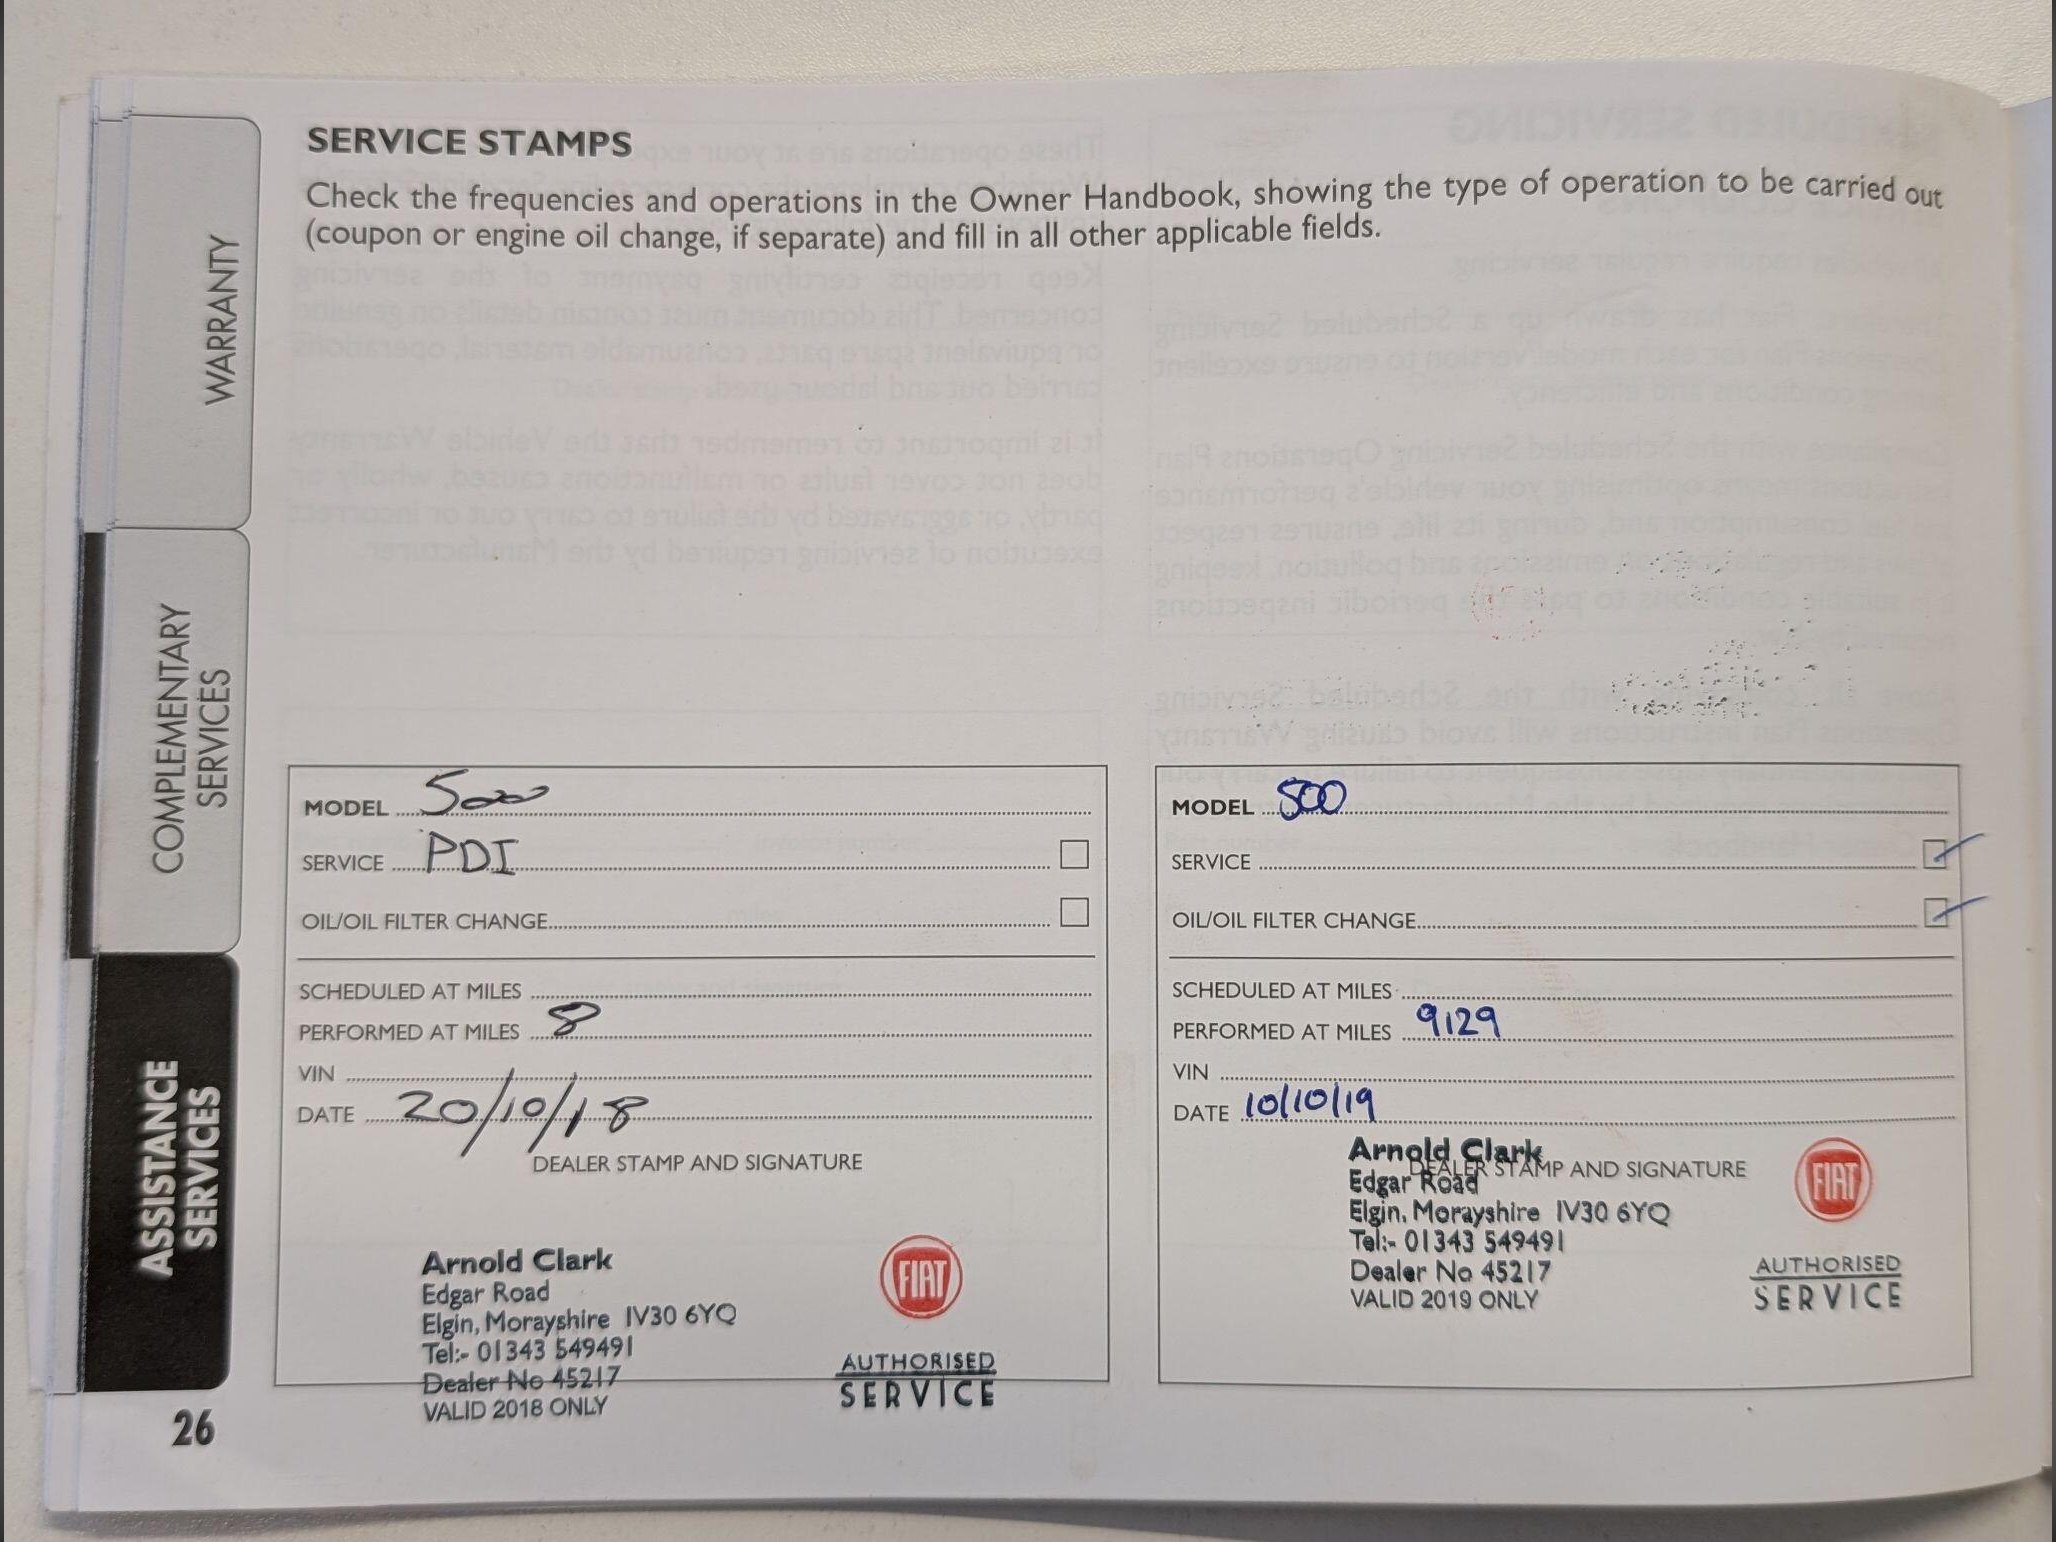 SERVICE STAMPS
Check the frequencies and operations in the Owner Handbook, showing the type of operation to be carried out
(coupon or engine oil change, if separate) and fill in all other applicable fields.
WARRANTY
COMPLEMENTARY
SERVICES
ASSISTANCE
SERVICES
26
MODEL 500
SERVICE PDI
OIL/OIL FILTER CHANGE
SCHEDULED AT MILES
PERFORMED AT MILES 8
VIN
DATE 20/10/18
DEALER STAMP AND SIGNATURE
Arnold Clark
Edgar Road
Elgin, Morayshire IV30 6YQ
Tel:- 01343 549491
Dealer No 45217
VALID 2018 ONLY
FIAT
AUTHORISED
SERVICE
MODEL 500
SERVICE
OIL/OIL FILTER CHANGE
SCHEDULED AT MILES
PERFORMED AT MILES 9129
VIN
DATE 10/10/19
DEALER STAMP AND SIGNATURE
Arnold Clark
Edgar Road
Elgin, Morayshire IV30 6YQ
Tel:- 01343 549491
Dealer No 45217
VALID 2019 ONLY
FIAT
AUTHORISED
SERVICE